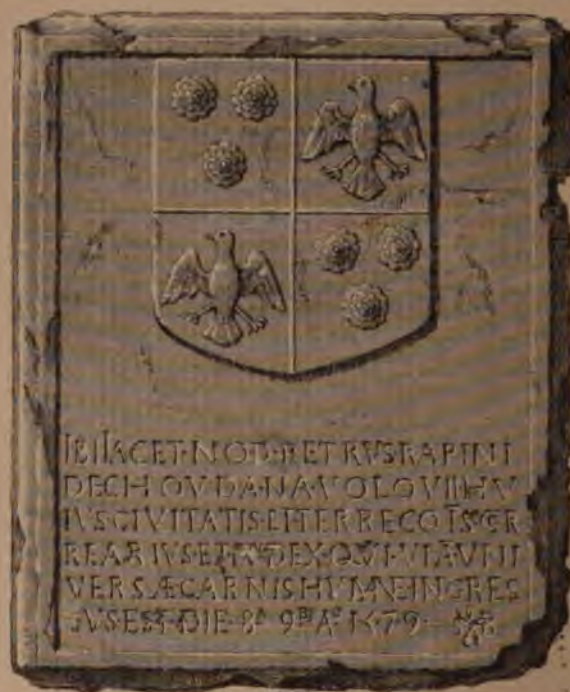 IBI IACET·NOB·PETRVS RAPINI
DECHOVDANA·VOLO VIR HV
IVS CIVITATIS·LITER
REARIVS·ET·IVDEX·QVI·VIĀ VNI
VERSÆ CARNIS HVMNE INGRES
SVS EST·DIE·8ᴬ 9ᴮᴿ Aº 1579